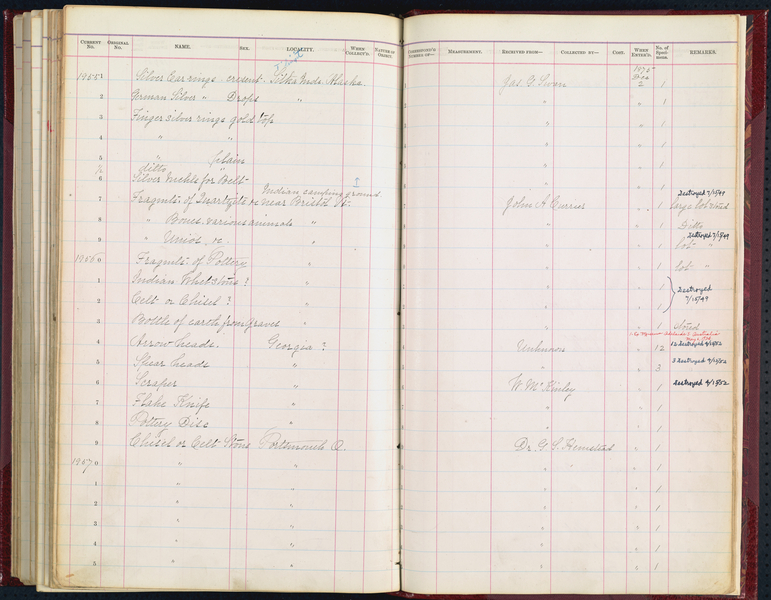 CURRENT No. ORIGINAL No. NAME. SEX. LOCALITY. WHEN COLLECT'D. NATURE OF OBJECT. MEASUREMENT. RECEIVED FROM— COLLECTED BY— COST. WHEN ENTER'D. No. of Speci-mens. REMARKS.
1875 Dec
19551 Silver Ear rings, credent. Sitka Inds. Alaska. Jas. G. Swan 2 1
2 German Silver " Drops " " " 1
3 Finger silver rings gold top " " 1
4 " " " " 1
5 " Plain " " 1
6 ditto " " 1
Silver for Belt
7 Fragmts of Quartzite &c near Bristol Vt. Indian camping ground. John A. Currier " 1 Destroyed 7/15/49
8 " Bones various animals " " " 1 Ditto
9 " Unios, &c. " " " 1 lot " Destroyed 7/15/49
19560 Fragmts. of Pottery " " " 1 lot "
1 Indian Whetstone? " " " 1 Destroyed 7/15/49
2 Celt or Chisel? " " " 1
3 Bottle of earth from Graves " " " 1
4 Arrow heads. Georgia? Unknown " 12 12 Destroyed
5 Spear heads " " " 3 3 Destroyed
6 Scraper " W. McKinley " 1 Destroyed
7 Flake Knife " " " 1
8 Pottery Disc " " " 1
9 Chisel or Celt Stone Portsmouth O. Dr. G. S. Hempstead " 1
19570 " " " " 1
1 " " " " 1
2 " " " " 1
3 " " " " 1
4 " " " " 1
5 " " " " 1